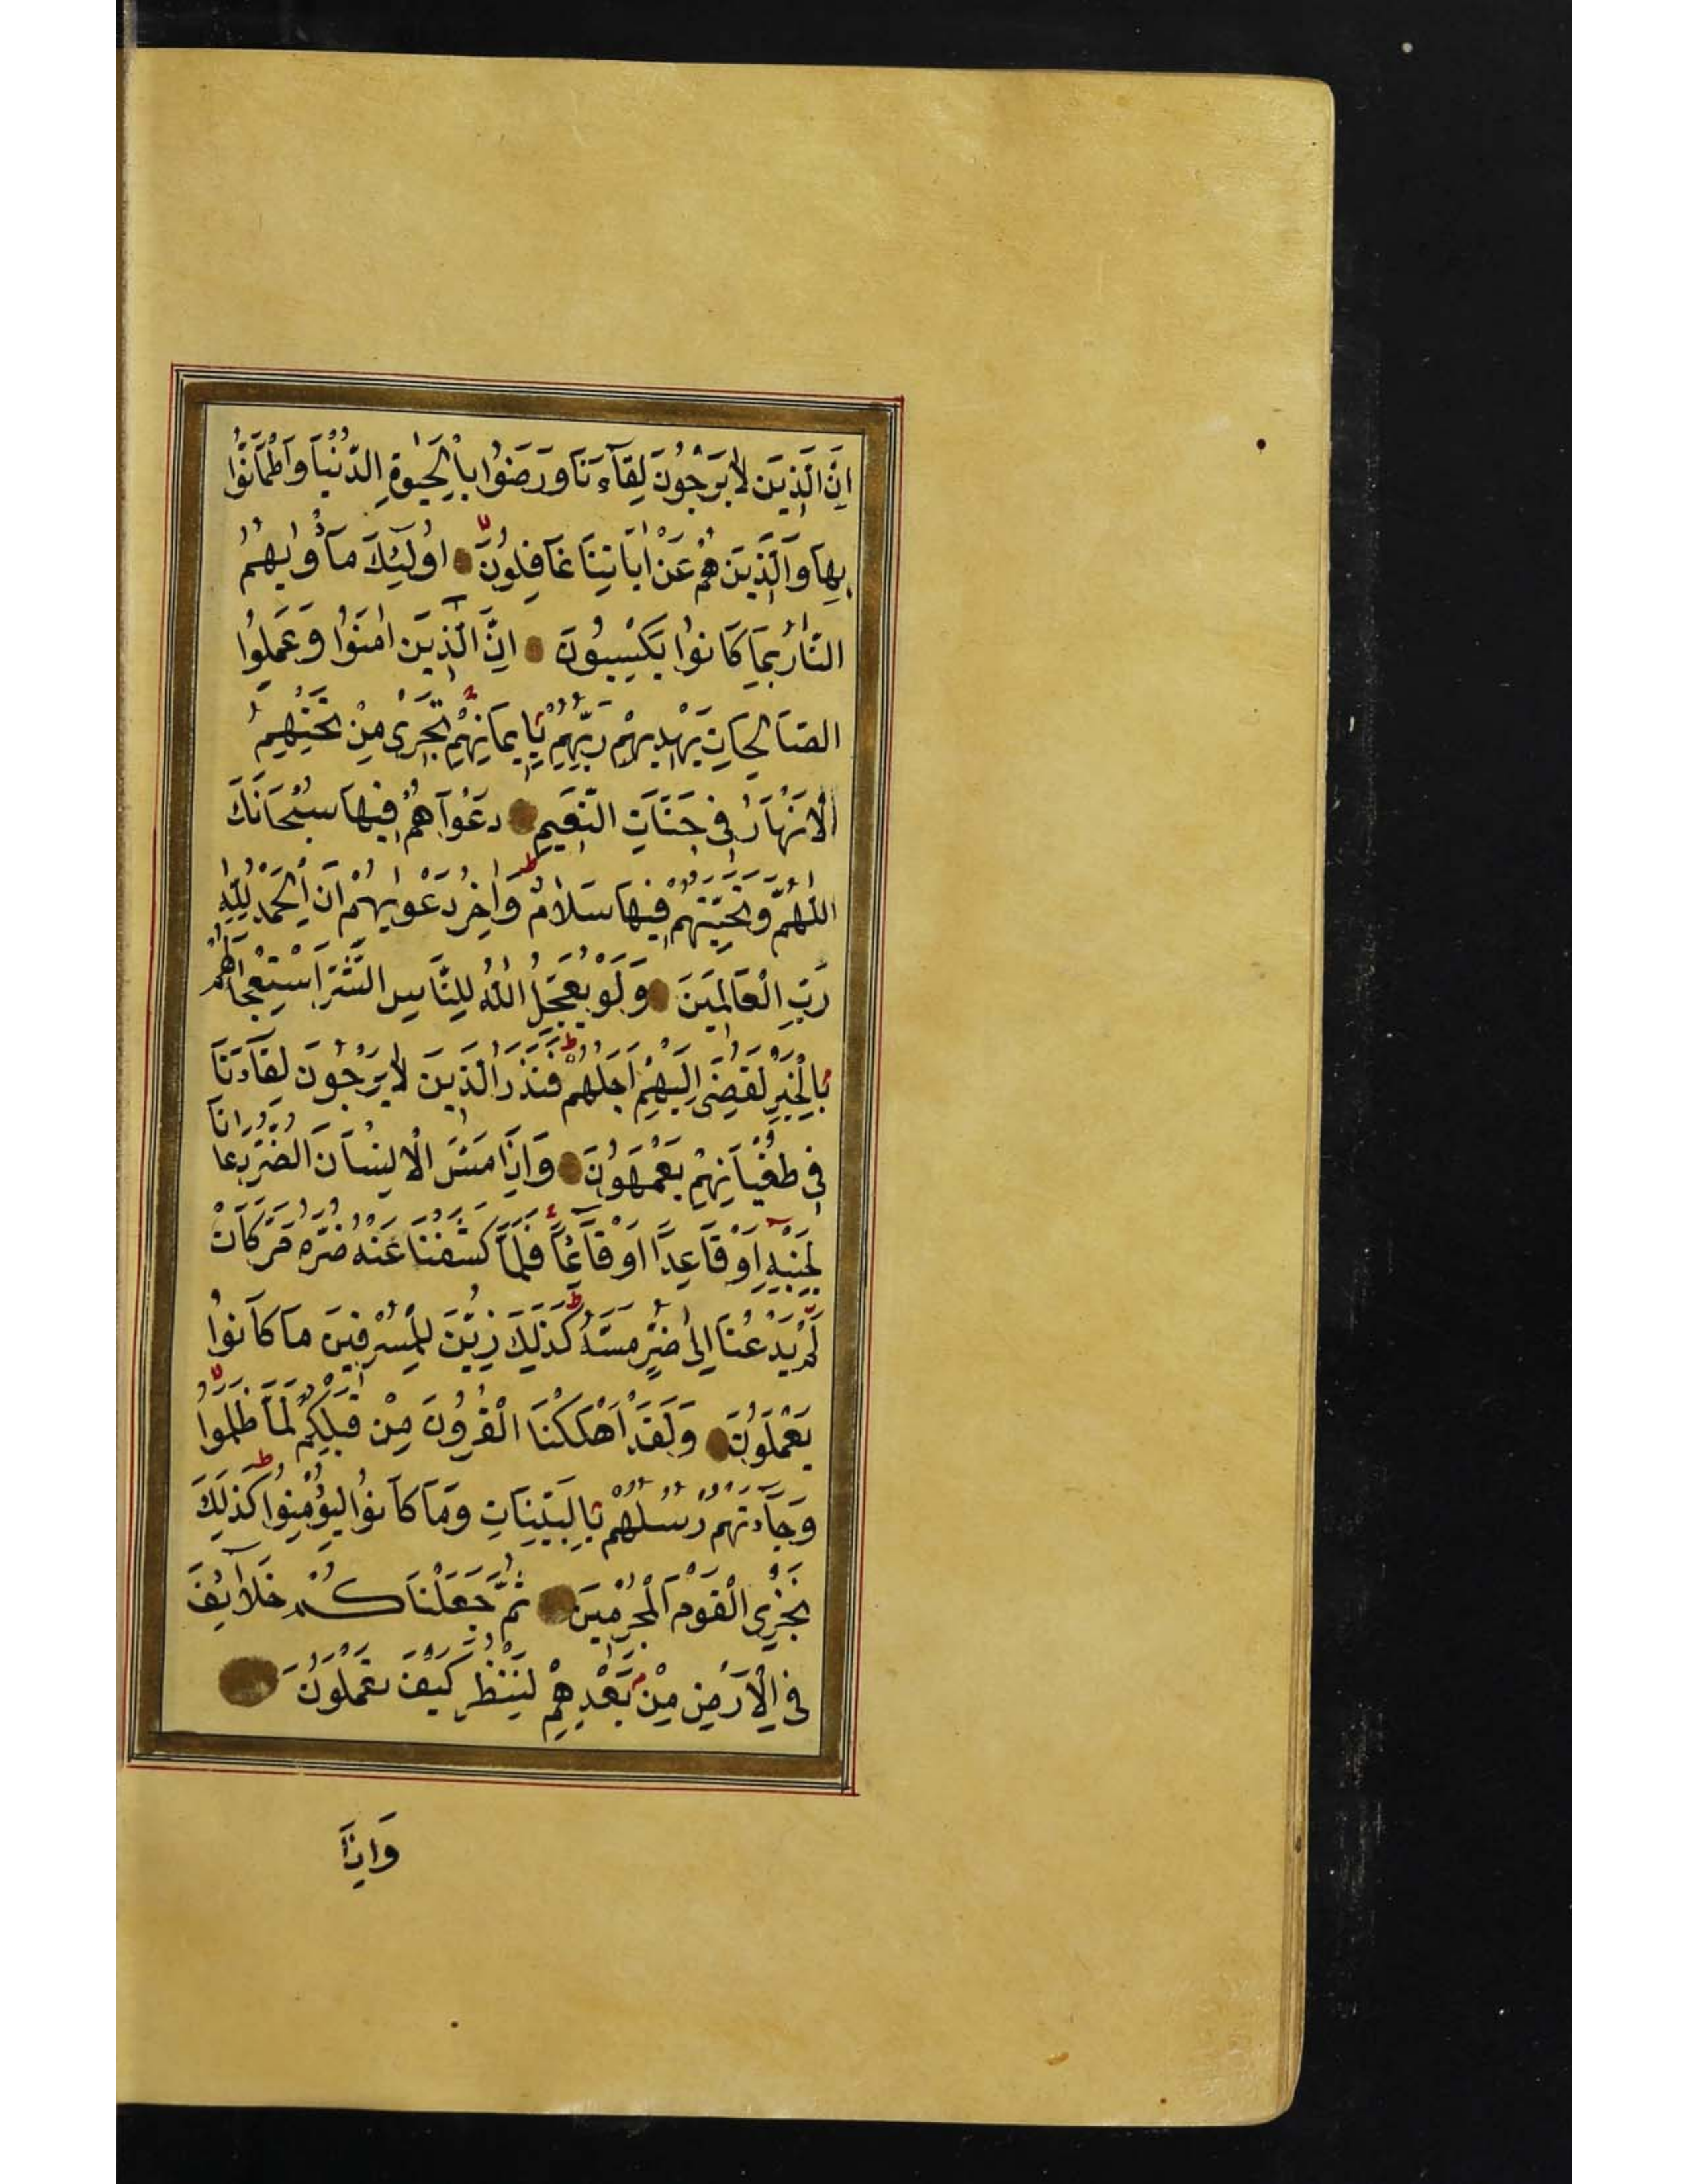 اِنَّ الَّذِينَ لَا يَرْجُونَ لِقَآءَنَا وَرَضُوا بِالْحَيٰوةِ الدُّنْيَا وَاطْمَاَنُّوا
بِهَا وَالَّذِينَ هُمْ عَنْ اٰيَاتِنَا غَافِلُونَ اُولٰٓئِكَ مَاْوٰيهُمُ
النَّارُ بِمَا كَانُوا يَكْسِبُونَ اِنَّ الَّذِينَ اٰمَنُوا وَعَمِلُوا
الصَّالِحَاتِ يَهْدِيهِمْ رَبُّهُمْ بِاِيمَانِهِمْ تَجْرِى مِنْ تَحْتِهِمُ
الْاَنْهَارُ فِى جَنَّاتِ النَّعِيمِ دَعْوَاهُمْ فِيهَا سُبْحَانَكَ
اللّٰهُمَّ وَتَحِيَّتُهُمْ فِيهَا سَلَامٌ وَاٰخِرُ دَعْوٰيهُمْ اَنِ الْحَمْدُ لِلّٰهِ
رَبِّ الْعَالَمِينَ وَلَوْ يُعَجِّلُ اللّٰهُ لِلنَّاسِ الشَّرَّ اسْتِعْجَالَهُمْ
بِالْخَيْرِ لَقُضِىَ اِلَيْهِمْ اَجَلُهُمْ فَنَذَرُ الَّذِينَ لَا يَرْجُونَ لِقَآءَنَا
فِى طُغْيَانِهِمْ يَعْمَهُونَ وَاِذَا مَسَّ الْاِنْسَانَ الضُّرُّ دَعَانَا
لِجَنْبِهِ اَوْ قَاعِدًا اَوْ قَآئِمًا فَلَمَّا كَشَفْنَا عَنْهُ ضُرَّهُ مَرَّ كَاَنْ
لَمْ يَدْعُنَا اِلٰى ضُرٍّ مَسَّهُ كَذٰلِكَ زُيِّنَ لِلْمُسْرِفِينَ مَا كَانُوا
يَعْمَلُونَ وَلَقَدْ اَهْلَكْنَا الْقُرُونَ مِنْ قَبْلِكُمْ لَمَّا ظَلَمُوا
وَجَآءَتْهُمْ رُسُلُهُمْ بِالْبَيِّنَاتِ وَمَا كَانُوا لِيُؤْمِنُوا كَذٰلِكَ
نَجْزِى الْقَوْمَ الْمُجْرِمِينَ ثُمَّ جَعَلْنَاكُمْ خَلَآئِفَ
فِى الْاَرْضِ مِنْ بَعْدِهِمْ لِنَنْظُرَ كَيْفَ تَعْمَلُونَ
وَاِذَا